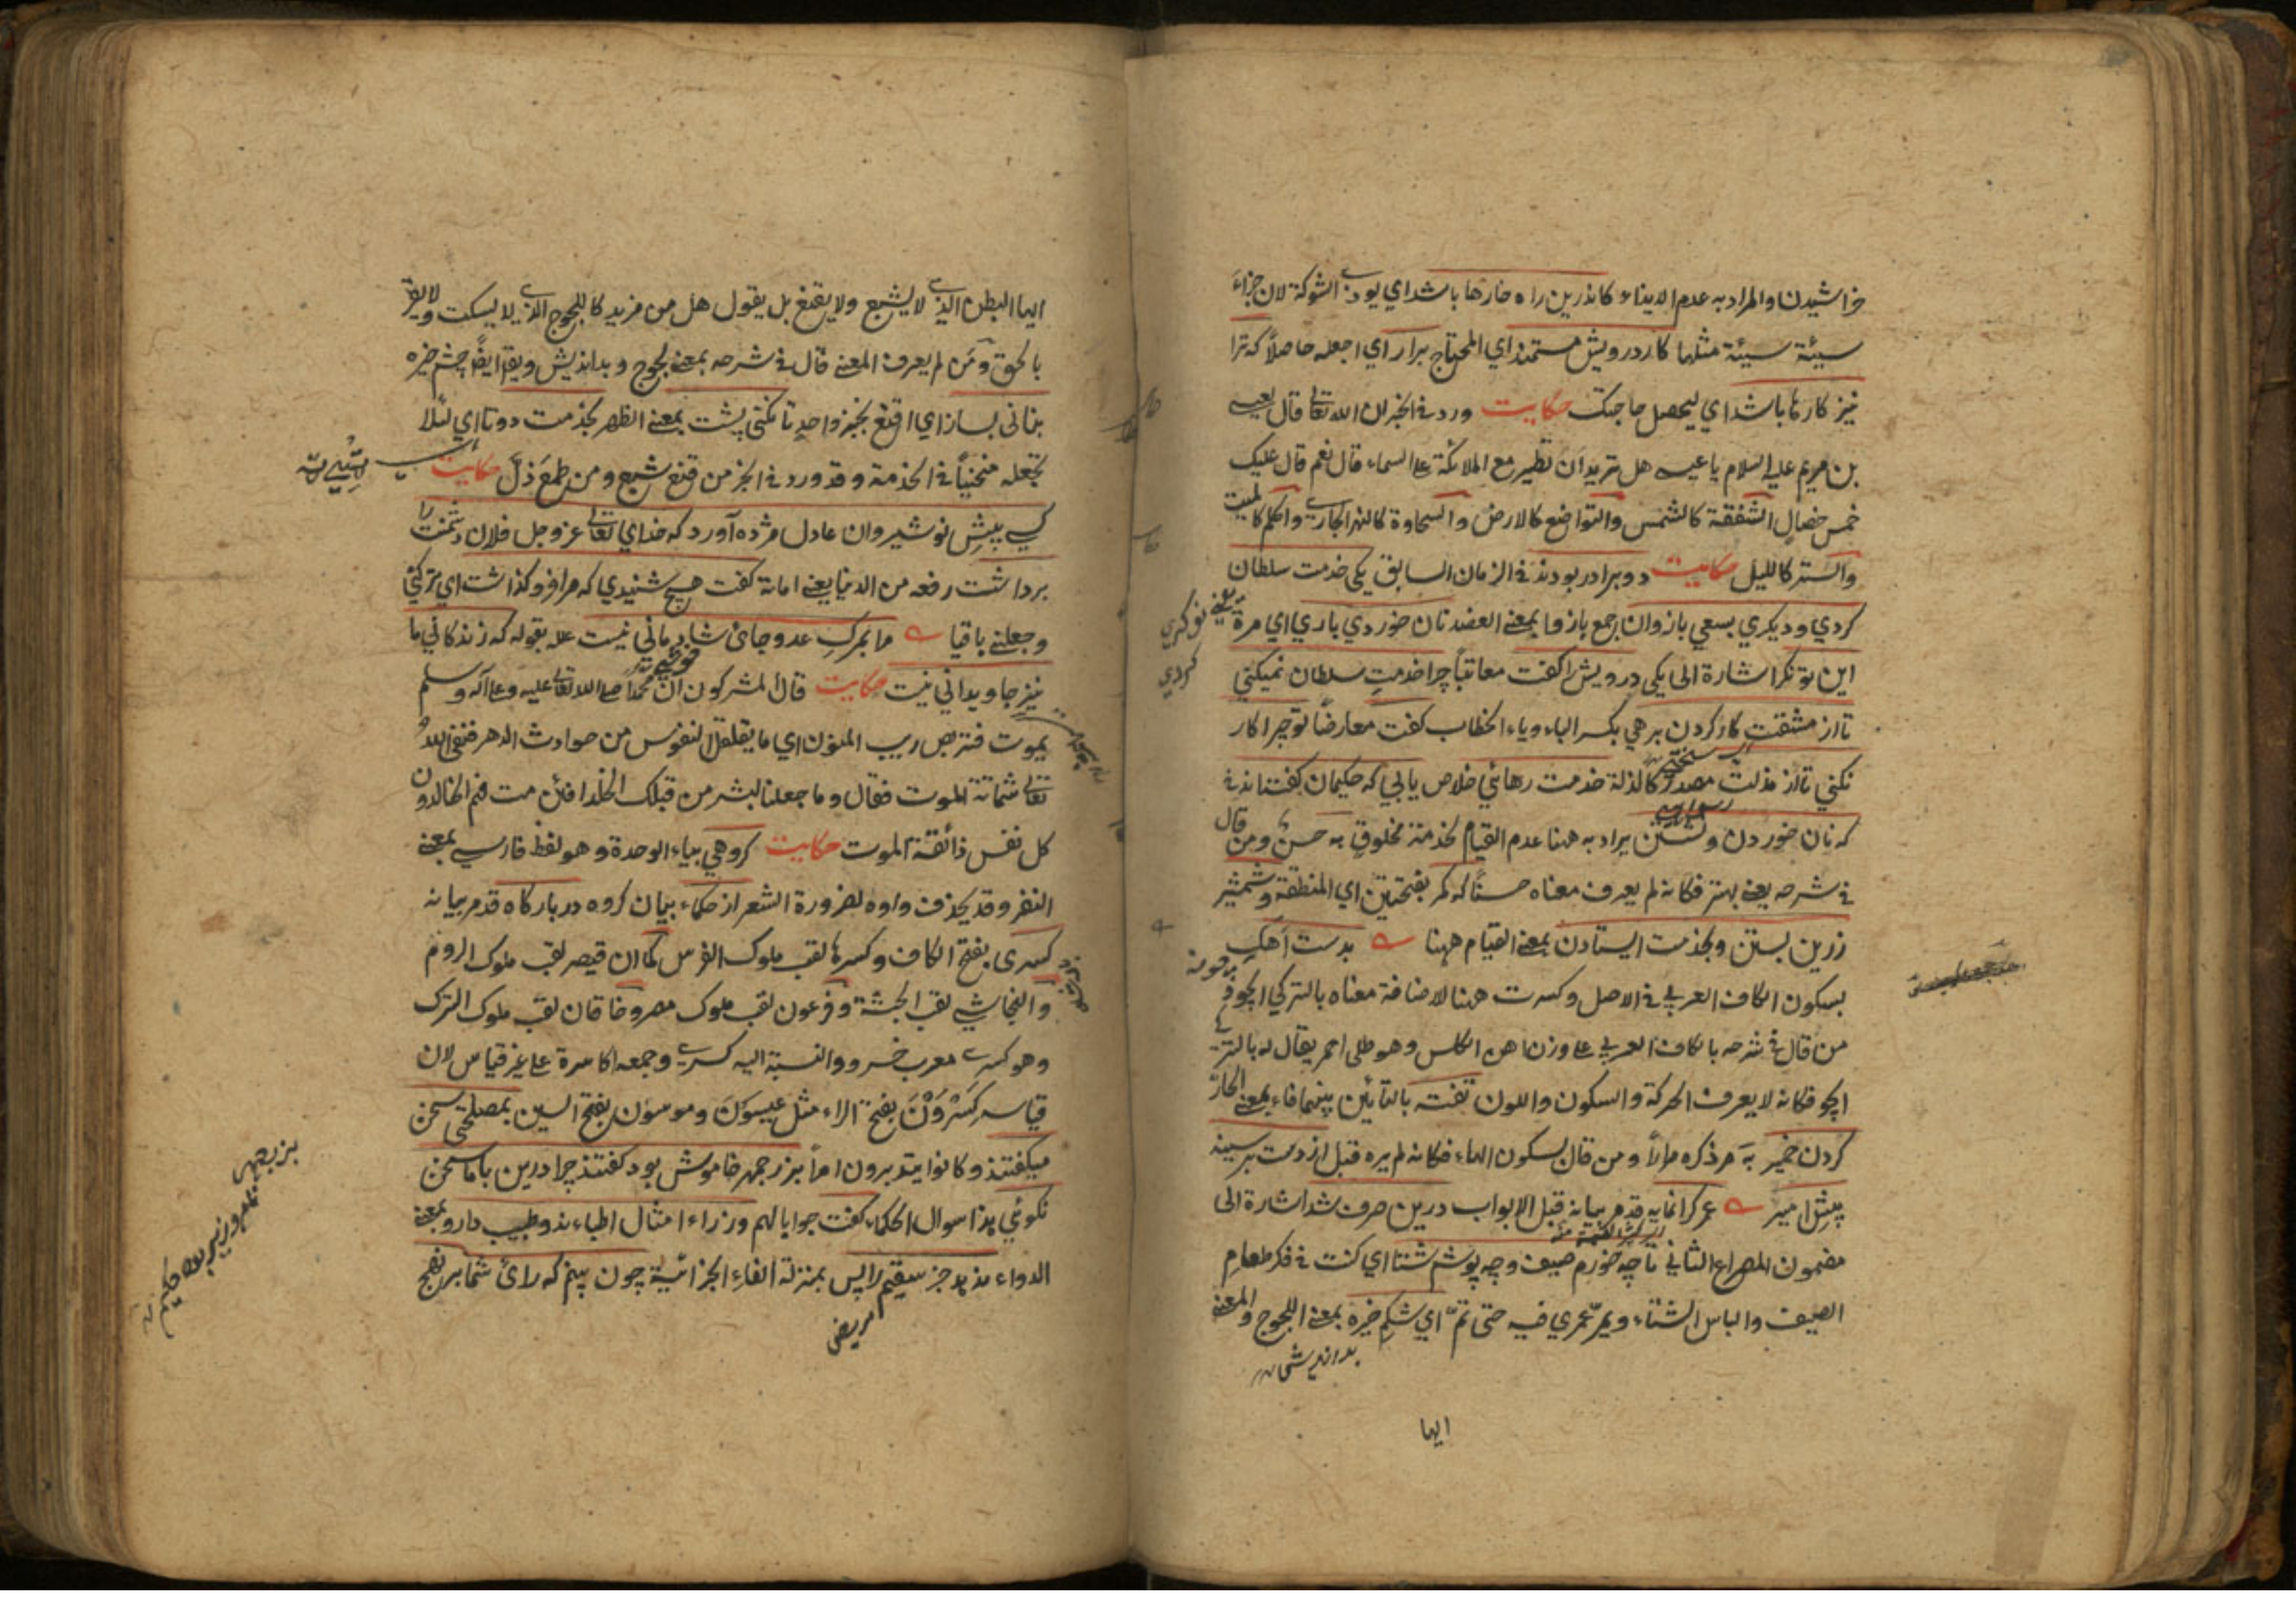 خراشيدن والمراد به عدم الايذاء كاندرين راه خارها باشد اي يوذي الشوكة لان جزاء
سيئة سيئة مثلها كار درويش مستمند اي المحتاج برار اي اجعله حاصلاً كه ترا
نيز كارها باشد اي ليحصل حاجتك حكايت ورد في الخبر ان الله تعالى قال لعيسى
بن مريم عليه السلام يا عيسى هل تريد ان تطير مع الملائكة على السماء قال نعم قال عليك
خمس خصال الشفقة كالشمس والتواضع كالارض والسخاوة كالنهر الجاري والحلم كالميت
والستر كالليل حكايت دو برادر بودند في الزمان السابق يكي خدمت سلطان
كردي وديكري بسعي بازوان جمع بازو بمعنى العضد نان خوردي باري اي مرة
اين توانكر اشارة الى يكي درويش را كفت معاتباً چرا خدمت سلطان نميكني
تا از مشقت كار كردن برهي بكسر الباء وياء الخطاب كفت معارضاً تو چرا كار
نكني تا از مذلت مصدر كالذلة خدمت رهائي خلاص يابي كه حكيمان كفته اند
كه نان خوردن ونشستن يراد به ههنا عدم القيام لخدمة مخلوق به حسن ومن قال
في شرحه يعني بهتر فكانه لم يعرف معناه حسناً كه كمر بفتحتين اي المنطقة وشمشير
زرين بستن وبخدمت ايستادن بمعنى القيام ههنا بدست آهك
بسكون الكاف العربي في الاصل وكسرت ههنا لاضافة معناه بالتركي
من قال في شرحه بالكاف العربي على وزن اهن الكلس وهو طلى احمر يقال له بالتركي
فكانه لا يعرف الحركة والسكون واللون تفته بالتائين بينهما فاء بمعنى الحار
كردن خمير به مر ذكره مراراً ومن قال بسكون الهاء فكانه لم يره قبل از دست بر سينه
پيش امير عمر كرانمايه قد مر بيانه قبل الابواب درين صرف شد اشارة الى
مضمون المصراع الثاني تا چه خورم صيف وچه پوشم شتا اي كنت في فكر طعام
الصيف والباس الشتاء ويمر عمري فيه حتى تم اي شكم خيره بمعنى اللجوج والمعنى
ايها
ايها البطن الذي لا يشبع ولا يقنع بل يقول هل من مزيد كاللجوج الذي لا يسكت ولا يقر
بالحق ومن لم يعرف المعنى قال في شرحه بمعنى لجوج وبدانديش ويقال ايضاً چشم خيره
بناني بساز اي اقنع بخبز واحد تا نكني پشت بمعنى الظهر بخدمت دوتا اي لئلا
تجعله منحنياً في الخدمة وقد ورد في الخبر من قنع شبع ومن طمع ذل حكايت
كسي پيش نوشيروان عادل مژده آورد كه خداي تعالى عز وجل فلان دشمنت را
برداشت رفعه من الدنيا يعني اماته كفت هيچ شنيدي كه مرا فرو كذاشت اي تركني
وجعلني باقيا مرا بمرك عدو جاي شادماني نيست علله بقوله كه زندكاني ما
نيز جاويداني نيست حكايت قال المشركون ان محمداً صلى الله تعالى عليه وعلى آله وسلم
يموت فنتربص ريب المنون اي ما يقلقل النفوس من حوادث الدهر فنفى الله
تعالى شماتة الموت فقال وما جعلنا لبشر من قبلك الخلد افئن مت فهم الخالدون
كل نفس ذائقة الموت حكايت كروهي بياء الوحدة وهو لفظ فارسي بمعنى
النفر وقد يحذف واوه لضرورة الشعر از حكماء بيان كروه در باركاه قد مر بيانه
كسرى بفتح الكاف وكسرها لقب ملوك الفرس كما ان قيصر لقب ملوك الروم
والنجاشي لقب الحبشة وفرعون لقب ملوك مصر وخاقان لقب ملوك الترك
وهو كسرى معرب خسرو والنسبة اليه كسري وجمعه اكاسرة على غير قياس لان
قياسه كسرون بفتح الراء مثل عيسون وموسون بفتح السين بمصلحتي سخن
ميكفتند وكانوا يتدبرون امراً بزرجمهر خاموش بود كفتند چرا درين با ما سخن
نكوئي هذا سوال الحكماء كفت جوابا لهم وزراء امثال اطباء اند وطبيب دارو بمعنى
الدواء ندهد جز سقيم را پس بمنزلة الفاء الجزائية چون بينم كه راي شما بر نهج
مريض